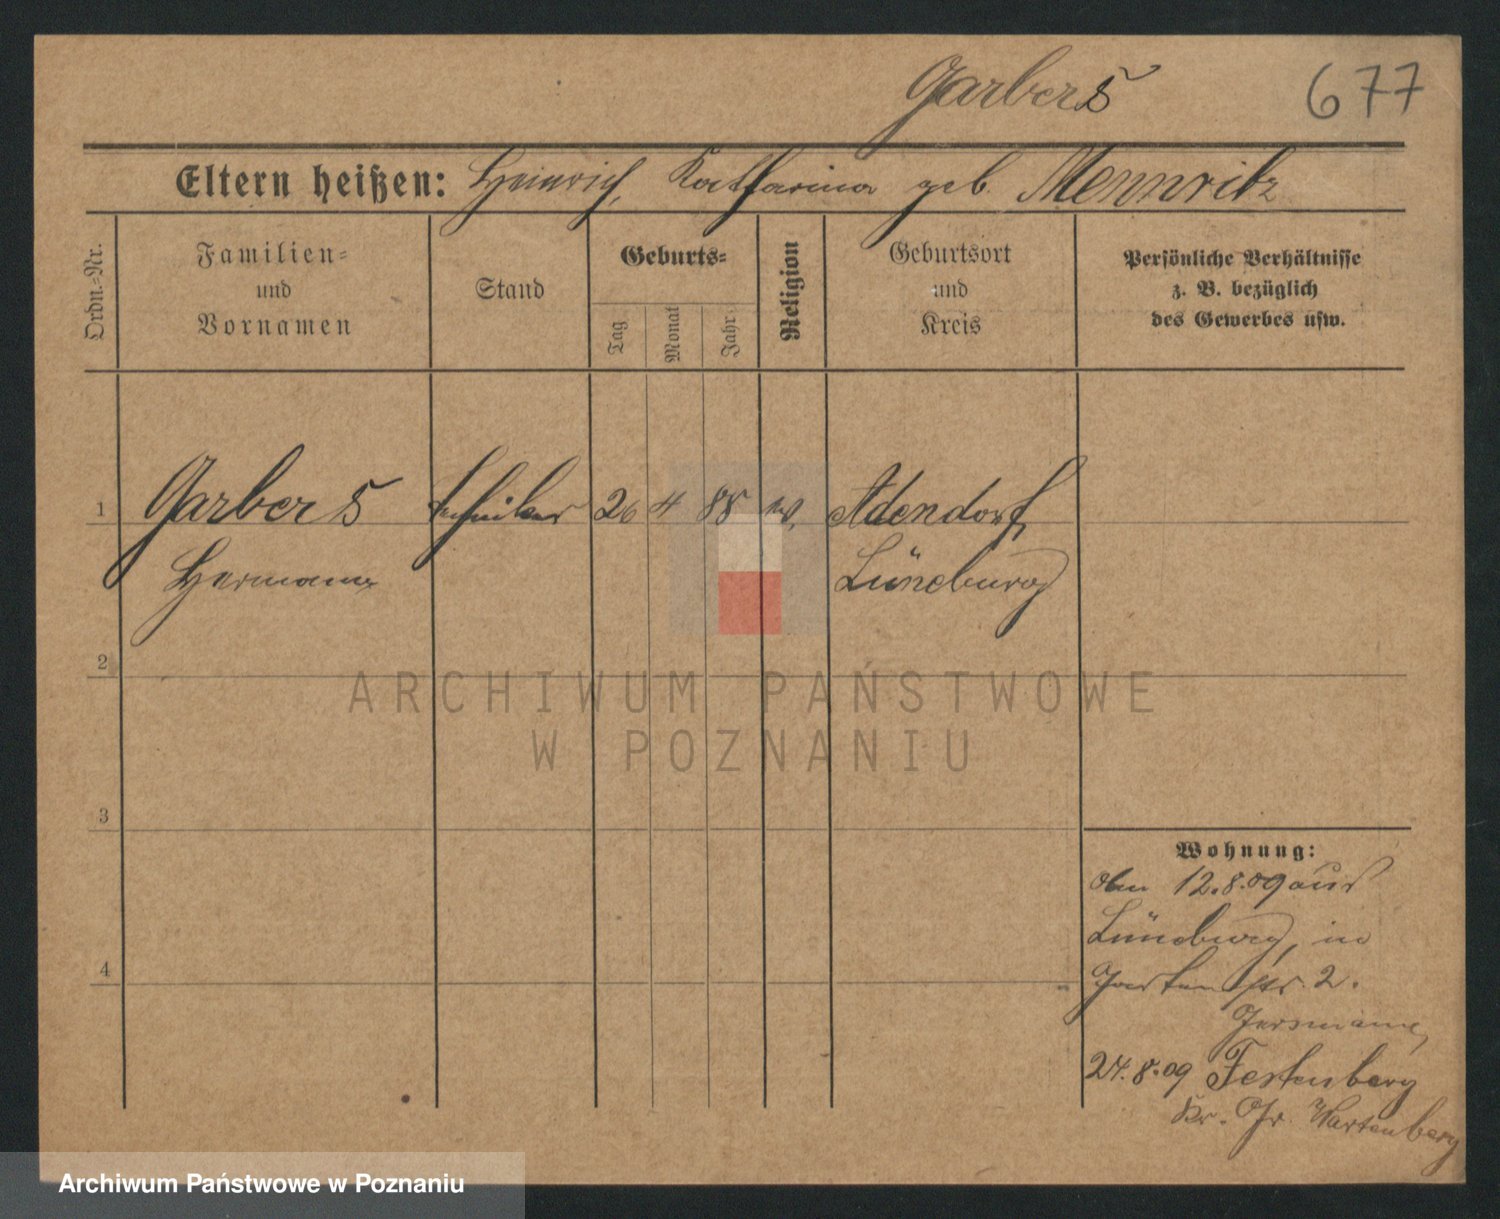 Garbers
677
Eltern heißen: Heinrich, Katharina geb. Mennritz
Ordn.-Nr.
Familien-
und
Vornamen
Stand
Geburts-
Tag
Monat
Jahr
Religion
Geburtsort
und
Kreis
Persönliche Verhältnisse
z. B. bezüglich
des Gewerbes usw.
1 Garbers Techniker 26 4 88 Adendorf,
Hermann Lüneburg
2
ARCHIWUM PAŃSTWOWE
W POZNANIU
3
Wohnung:
12.8.09 aus
Lüneburg, in
4
Gartenstr. 2.
24.8.09 Festenberg
Kr. Gr. Wartenberg
Archiwum Państwowe w Poznaniu